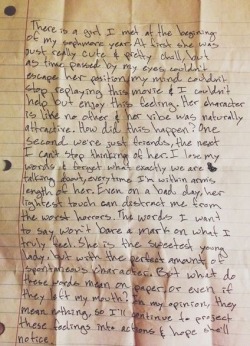 There is a girl I met at the begining
of my sophmore year. At first she was
just really cute & pretty chill, but
as time passed by my eyes couldn't
escape her position, my mind couldn't
stop replaying this movie & I couldn't
help but enjoy this feeling. Her character
is like no other & her vibe was naturally
attractive. How did this happen? One
second we're just friends, the next
I can't stop thinking of her. I lose my
words & forget what exactly we are
talking about, everytime I'm within arms
length of her. Even on a bad day, her
lightest touch can distract me from
the worst horrors. The words I want
to say won't bare a mark on what I
truly feel. She is the sweetest young
lady, but with the perfect amount of
spontaneous character. But what do
these words mean on paper, or even if
they left my mouth? In my opinion, they
mean nothing, so I'll continue to project
these feelings into actions & hope she'll
notice.